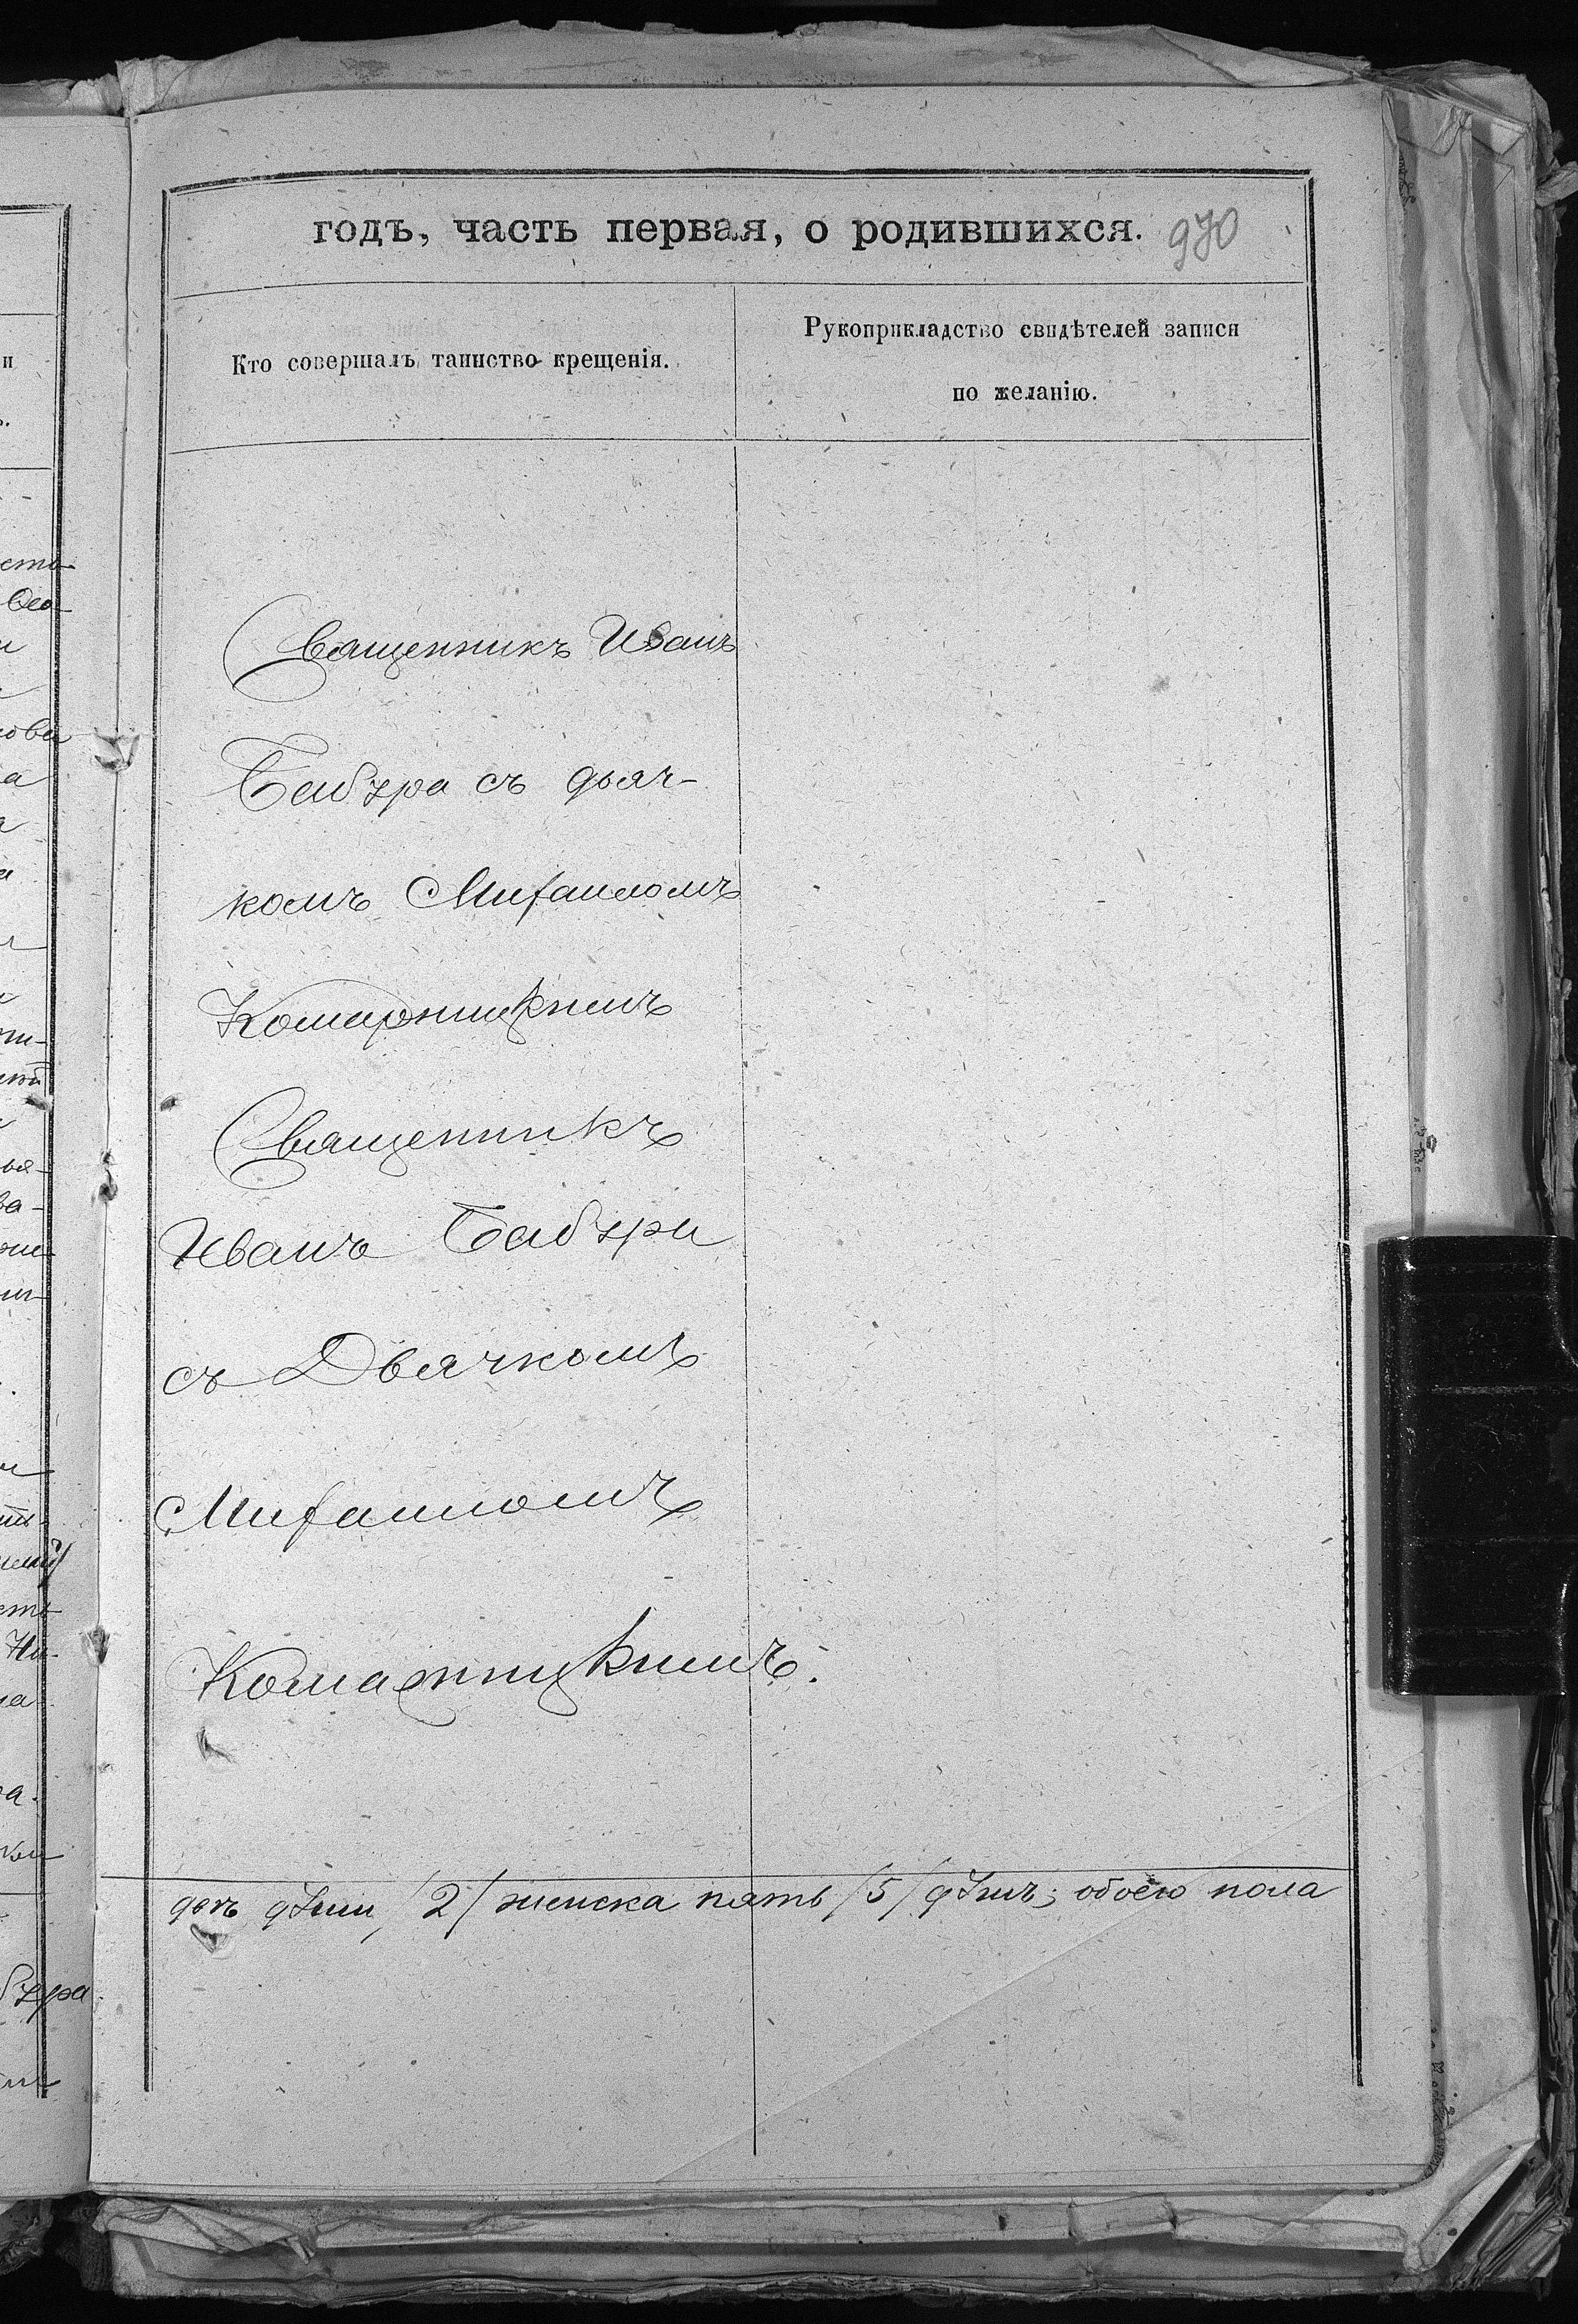 годъ, часть первая, о родившихся. 970
Кто совершалъ таинство крещенія.
Рукоприкладство свидѣтелей записи
по желанію.
Священникъ Иванъ
Бабура съ дьяч-
комъ Михаиломъ
Комарницкимъ
Священникъ
Иванъ Бабура
съ Дьячкомъ
Михаиломъ
Комарницкимъ.
двѣ души /2/ женска пять /5/ душъ; обоего пола